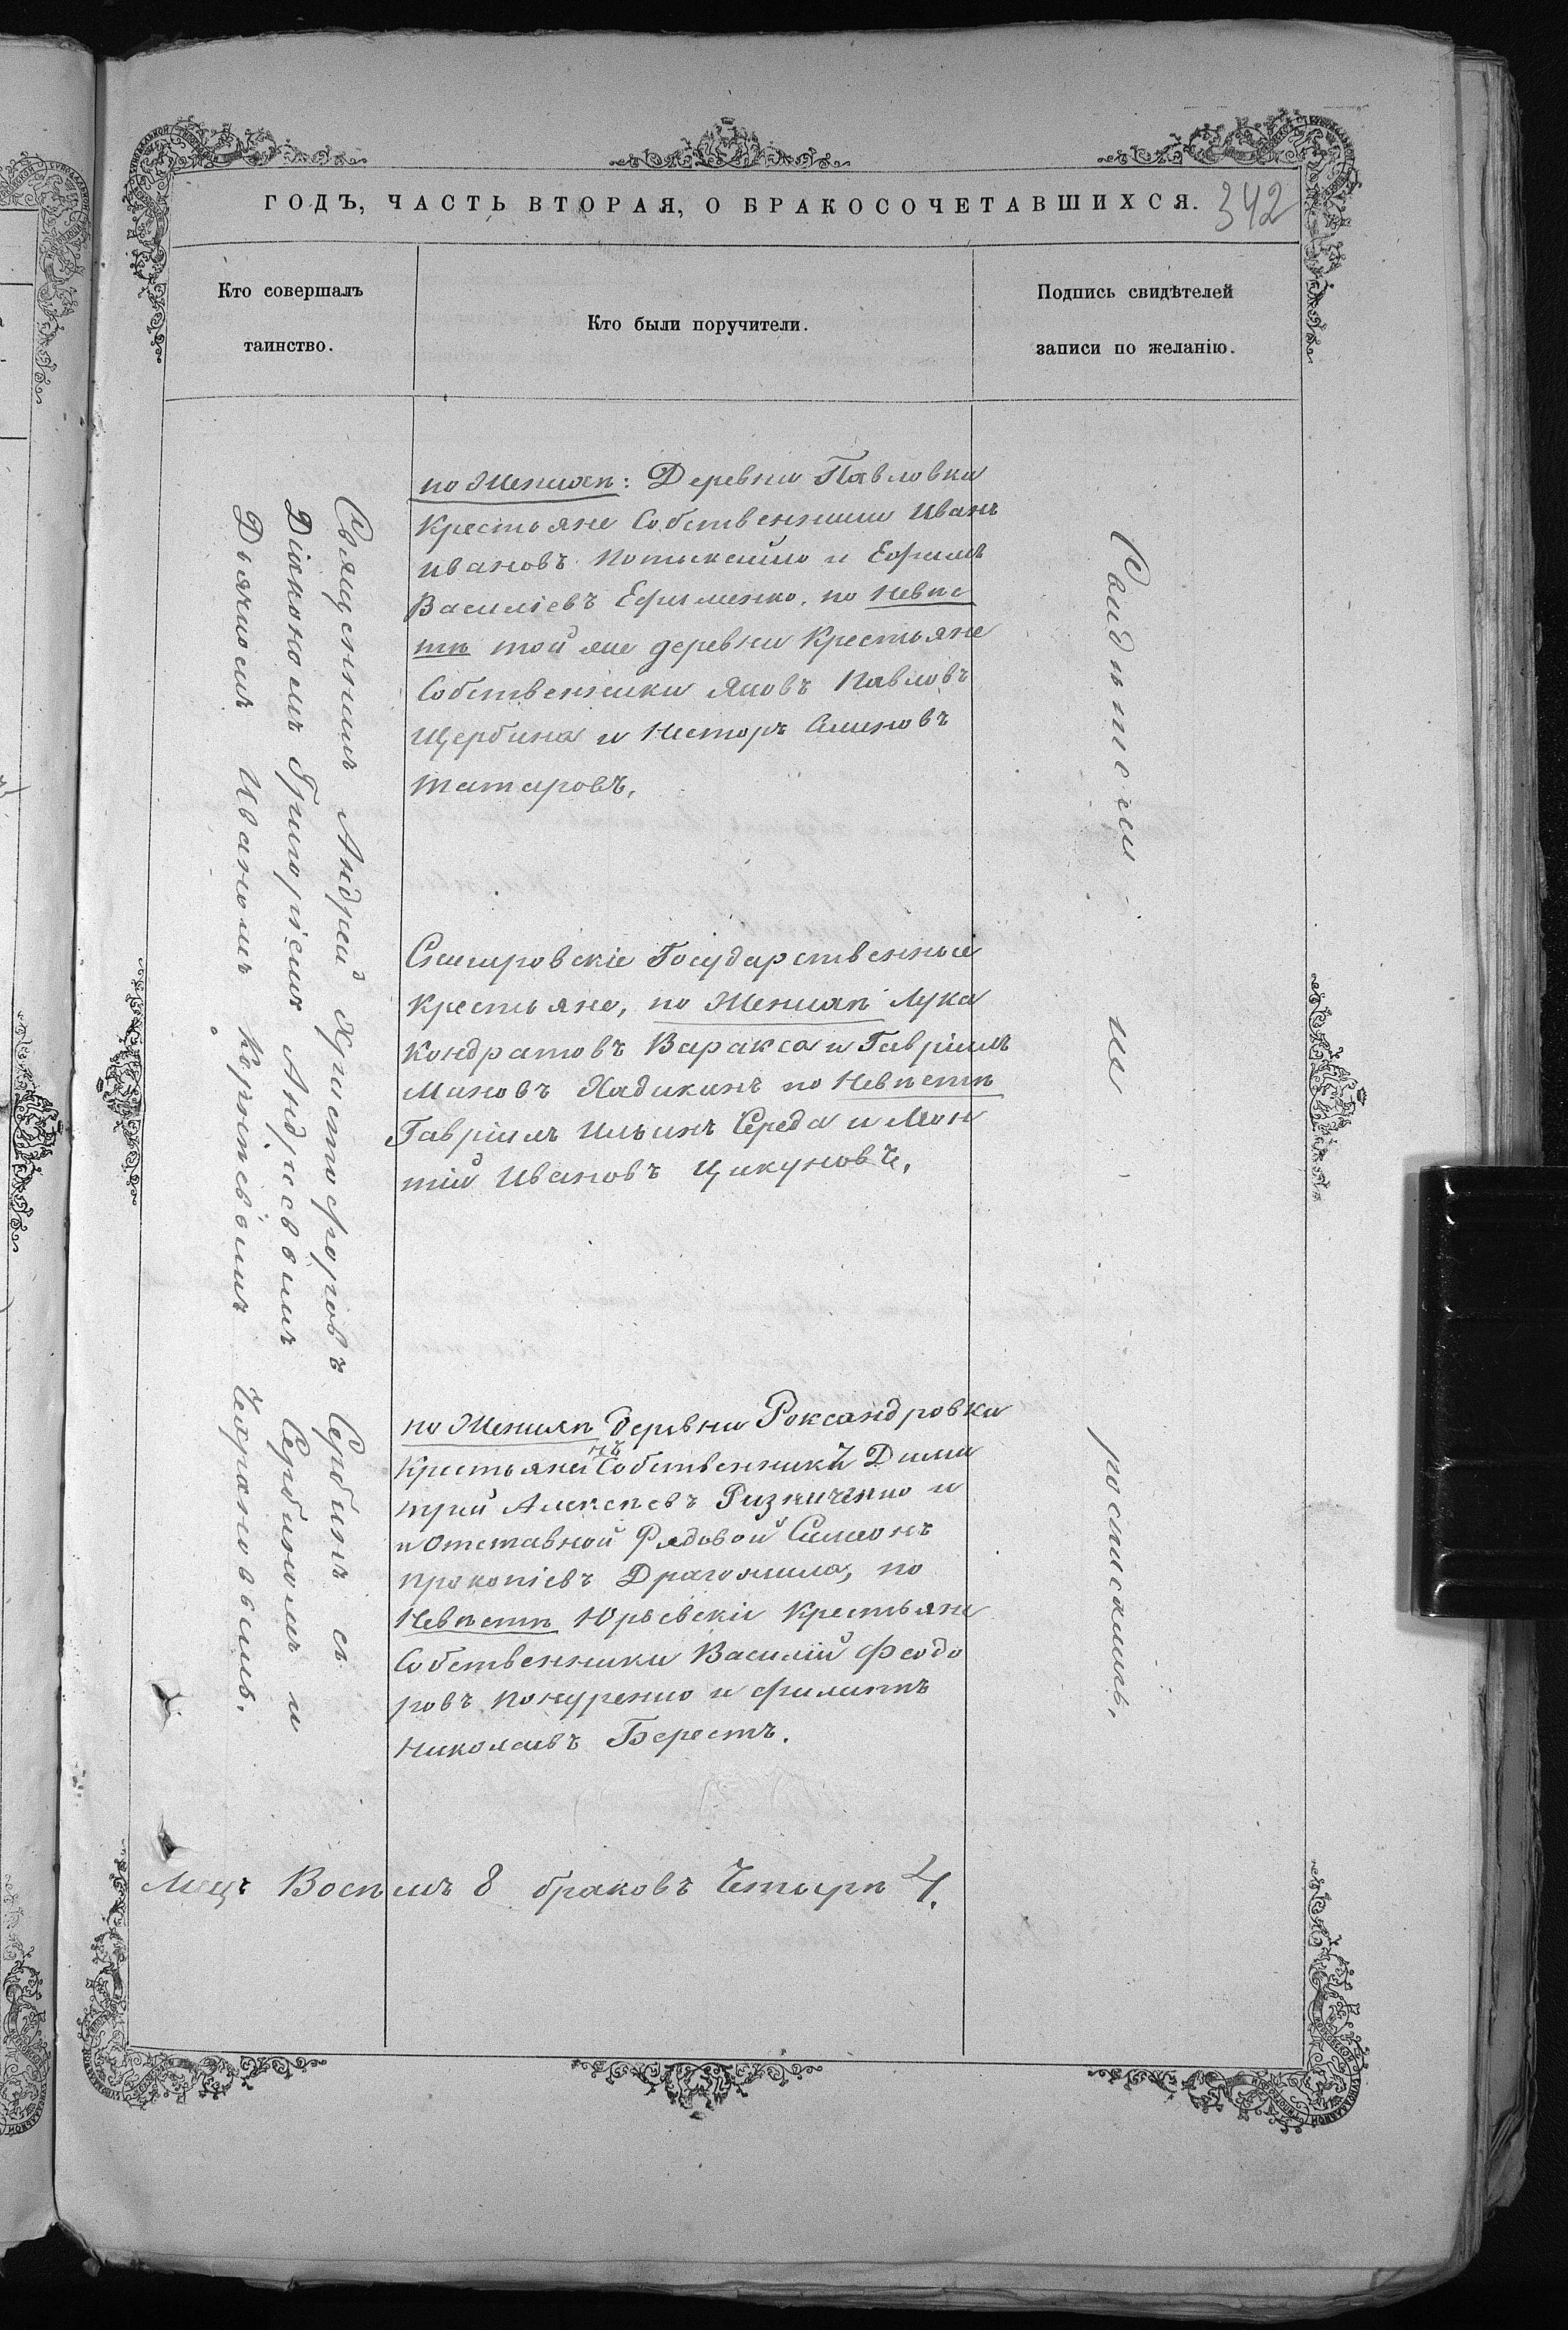 ГОДЪ, ЧАСТЬ ВТОРАЯ, О БРАКОСОЧЕТАВШИХСЯ. 342
Кто совершалъ
таинство.
Кто были поручители.
Подпись свидѣтелей
записи по желанію.
Священникъ Андрей Христофоровъ Сербинъ съ
Діакономъ Григоріемъ Андреевымъ Сербиномъ и
Дьячкомъ Иваномъ
по Женихѣ: Деревни Павловки
Крестьяне Собственники Иванъ
Ивановъ и Ефимъ
Василіевъ Ефименко. по Невѣс
тѣ той же деревни Крестьяне
Собственники Яковъ Павловъ
Щербина и Несторъ Симновъ
Татаровъ.
Государственные
Крестьяне, по Женихѣ Лука
КондратовъВаракса и Гавріилъ
Миновъ Хадикинъ по Невѣстѣ
Гавріилъ Ильинъ Середа и Мон
тій Ивановъ Цикуновъ.
по Женихѣ деревни Роксандровки
Крестьянинъ Собственникъ Дими
трій Алексѣевъ Ризниченко и
и Отставной Рядовой Симеонъ
Прокопіевъ по
Невѣстѣ Юрьевскіе Крестьяне
Собственники Василій Феодо
ровъ Кокуренко и Филиппъ
Николаевъ Берестъ.
Свидѣтели не росписались.
8 браковъ Четыре 4.